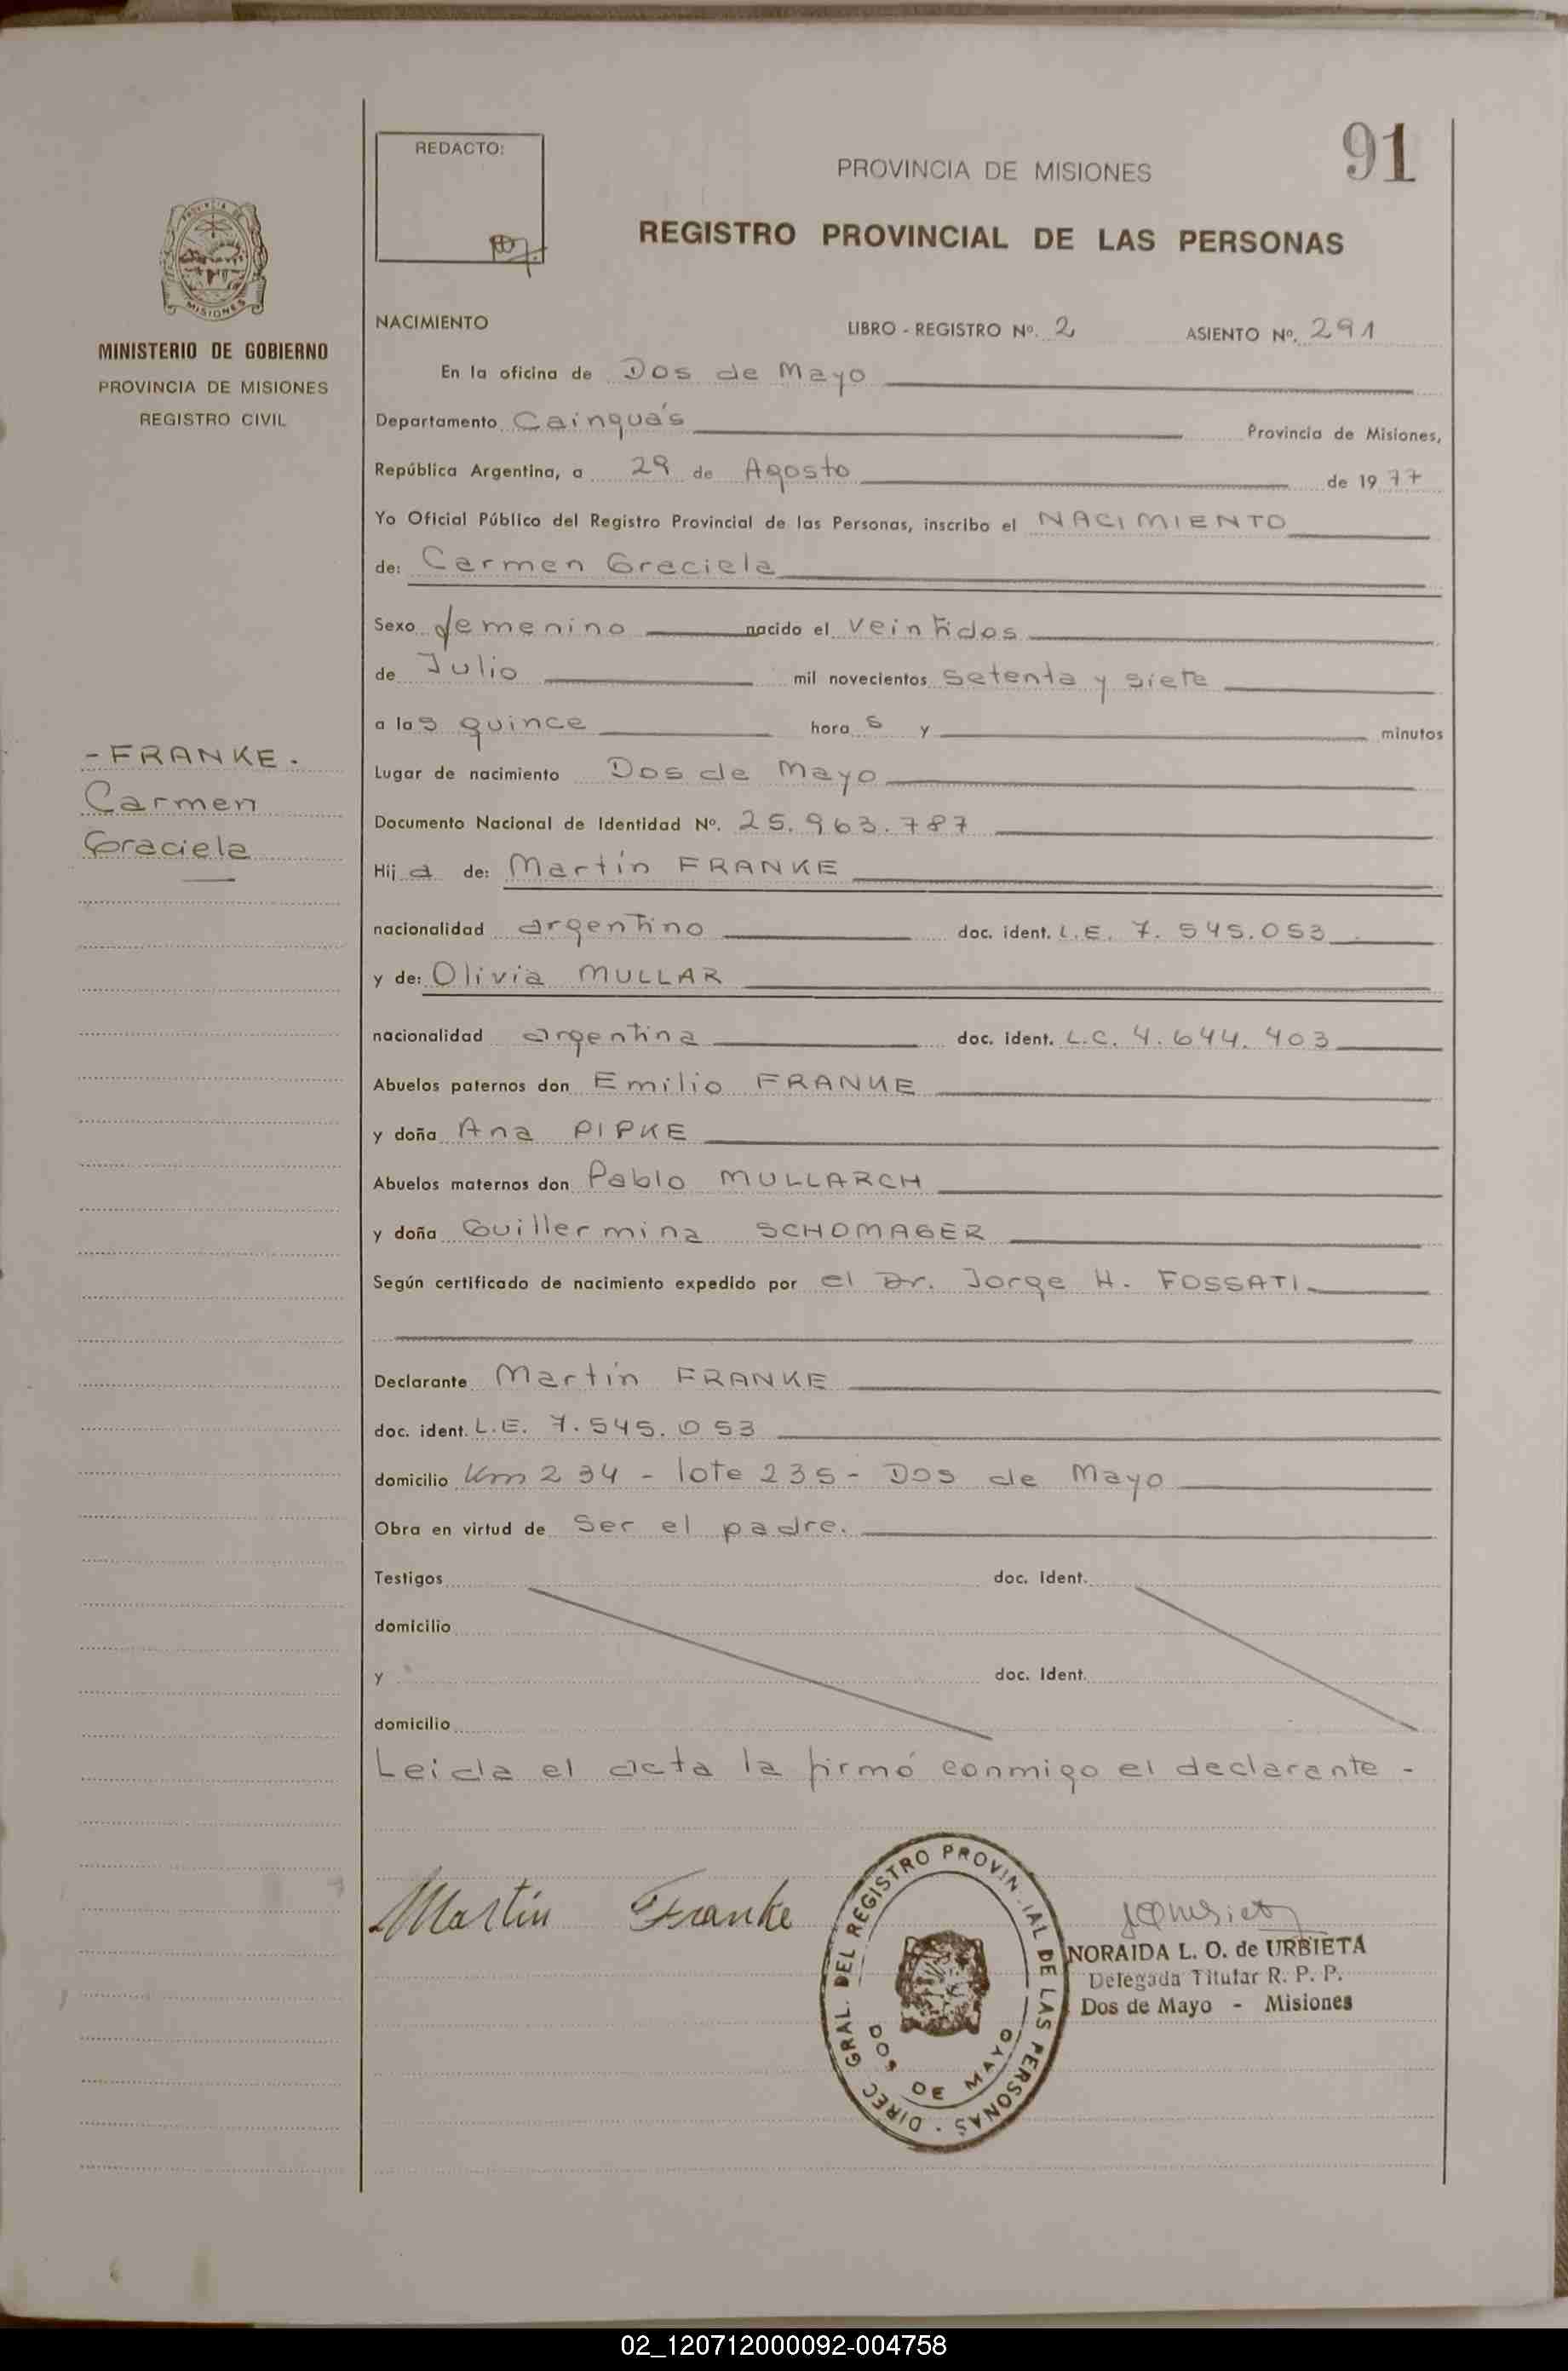 91
REDACTO:
PROVINCIA DE MISIONES
REGISTRO PROVINCIAL DE LAS PERSONAS
MISIONES
MINISTERIO DE GOBIERNO
PROVINCIA DE MISIONES
REGISTRO CIVIL
- FRANKE.
Carmen
Graciela
NACIMIENTO LIBRO - REGISTRO Nº. 2 ASIENTO Nº. 291
En la oficina de Dos de Mayo
Departamento Cainguás Provincia de Misiones,
República Argentina, a 29 de Agosto de 1977
Yo Oficial Público del Registro Provincial de las Personas, inscribo el NACIMIENTO
de: Carmen Graciela
Sexo femenino nacido el veintidos
de Julio mil novecientos setenta y siete
a las quince horas y minutos
Lugar de nacimiento Dos de Mayo
Documento Nacional de Identidad Nº. 25.963.787
Hija de: Martín FRANKE
nacionalidad argentino doc. ident. L.E. 7.545.053
y de: Olivia MULLAR
nacionalidad argentina doc. ident. L.C. 4.644.403
Abuelos paternos don Emilio FRANKE
y doña Ana PIPKE
Abuelos maternos don Pablo MULLARCH
y doña Guillermina SCHOMAGER
Según certificado de nacimiento expedido por el Dr. Jorge H. FOSSATI
Declarante Martín FRANKE
doc. ident. L.E. 7.545.053
domicilio Km 234 - lote 235 - Dos de Mayo
Obra en virtud de Ser el padre.
Testigos doc. Ident.
domicilio
y doc. Ident.
domicilio
Leida el acta la firmó conmigo el declarante -
Martín Franke
DIREC. GRAL. DEL REGISTRO PROVIN. IAL DE LAS PERSONAS -
DOS DE MAYO
NORAIDA L. O. de URBIETA
Delegada Titular R. P. P.
Dos de Mayo - Misiones
02_120712000092-004758